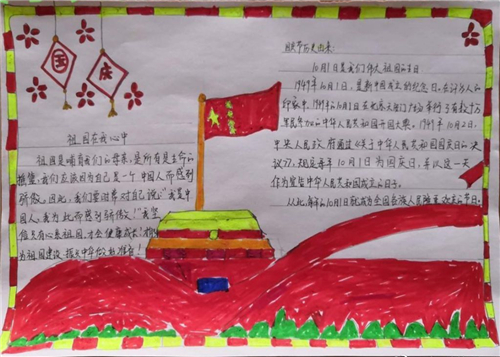 国
庆
祖国在我心中
祖国是哺育我们的母亲，是所有是生命的
摇篮，我们应该因为自己是一个中国人而感到
骄傲。因此，我们要时常对自己说："我是中
国人，我为此而感到骄傲！"我坚
信只有心系祖国，才会健康成长！
为祖国建设、振兴中华做好准备！
国庆节历史由来：
10月1日是我们伟大祖国的生日
1949年10月1日，是新中国成立的纪念日。在许多人的
印象中，1949年10月1日在北京天安门广场举行了有数十万
军民参加的中华人民共和国开国大典。1949年10月2日，
中央人民政府通过《关于中华人民共和国国庆日的决
议》，规定每年10月1日为国庆日，并以这一天
作为宣告中华人民共和国成立的日子。
从此，每年的10月1日就成为全国各族人民隆重欢庆的节日。